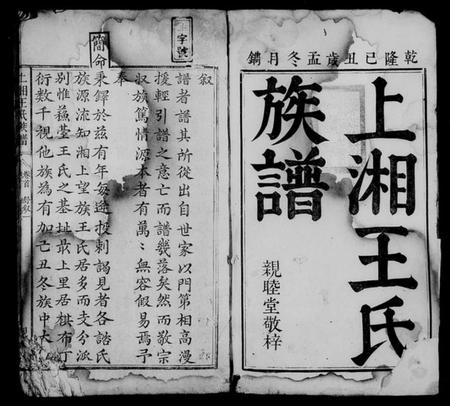 乾隆己丑歲孟冬月鐫
上湘王氏
族譜
親睦堂敬梓
字號
敘
譜者譜其所從出自世家以門第相高漫
援輕引譜之意亡而譜幾落矣然而敬宗
収族篤情源本者有萬〻無容假易焉予
奉
簡命秉鐸於茲有年每逢投刺謁見者各諮氏
族源流知湘上望族王氏居多而支分派
別惟蘓塋王氏之基址㝡上里居棋布丁
衍數千視他族為有加己丑冬族中大
上湘王氏族譜
卷首